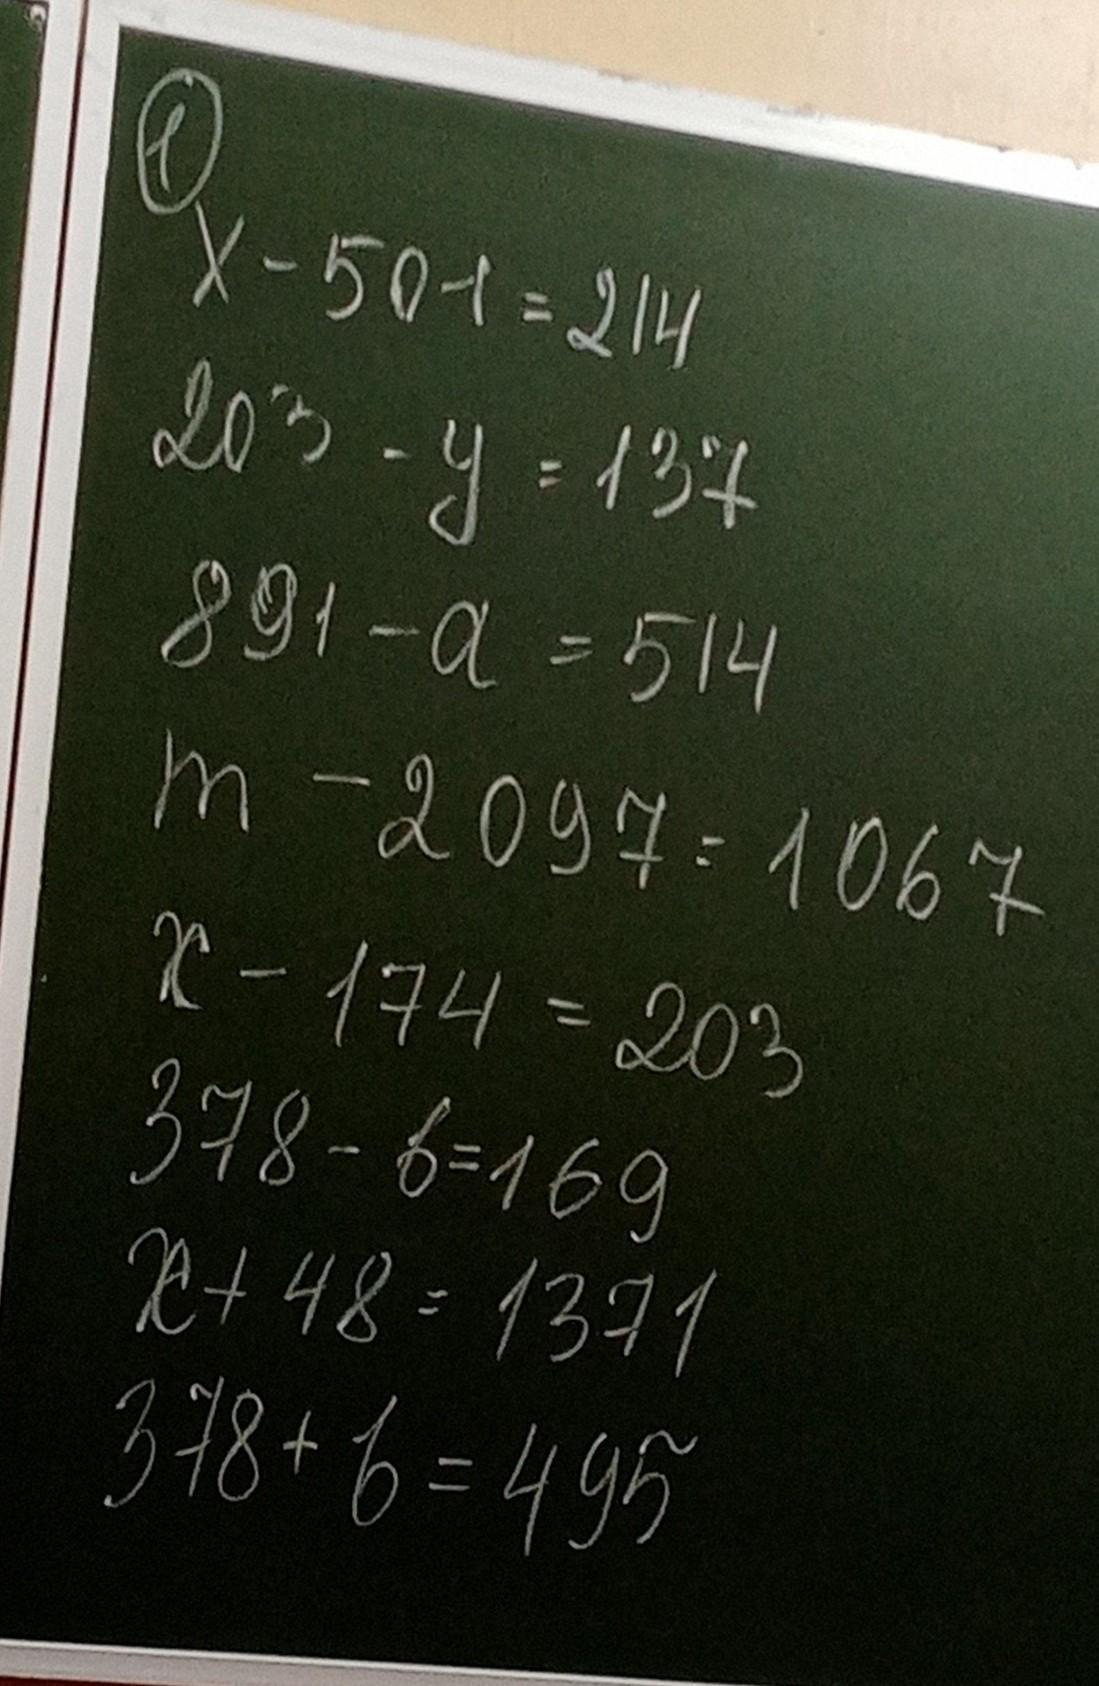 1
x - 501 = 214
203 - y = 137
891 - a = 514
m - 2097 = 1067
x - 174 = 203
378 - b = 169
x + 48 = 1371
378 + b = 495